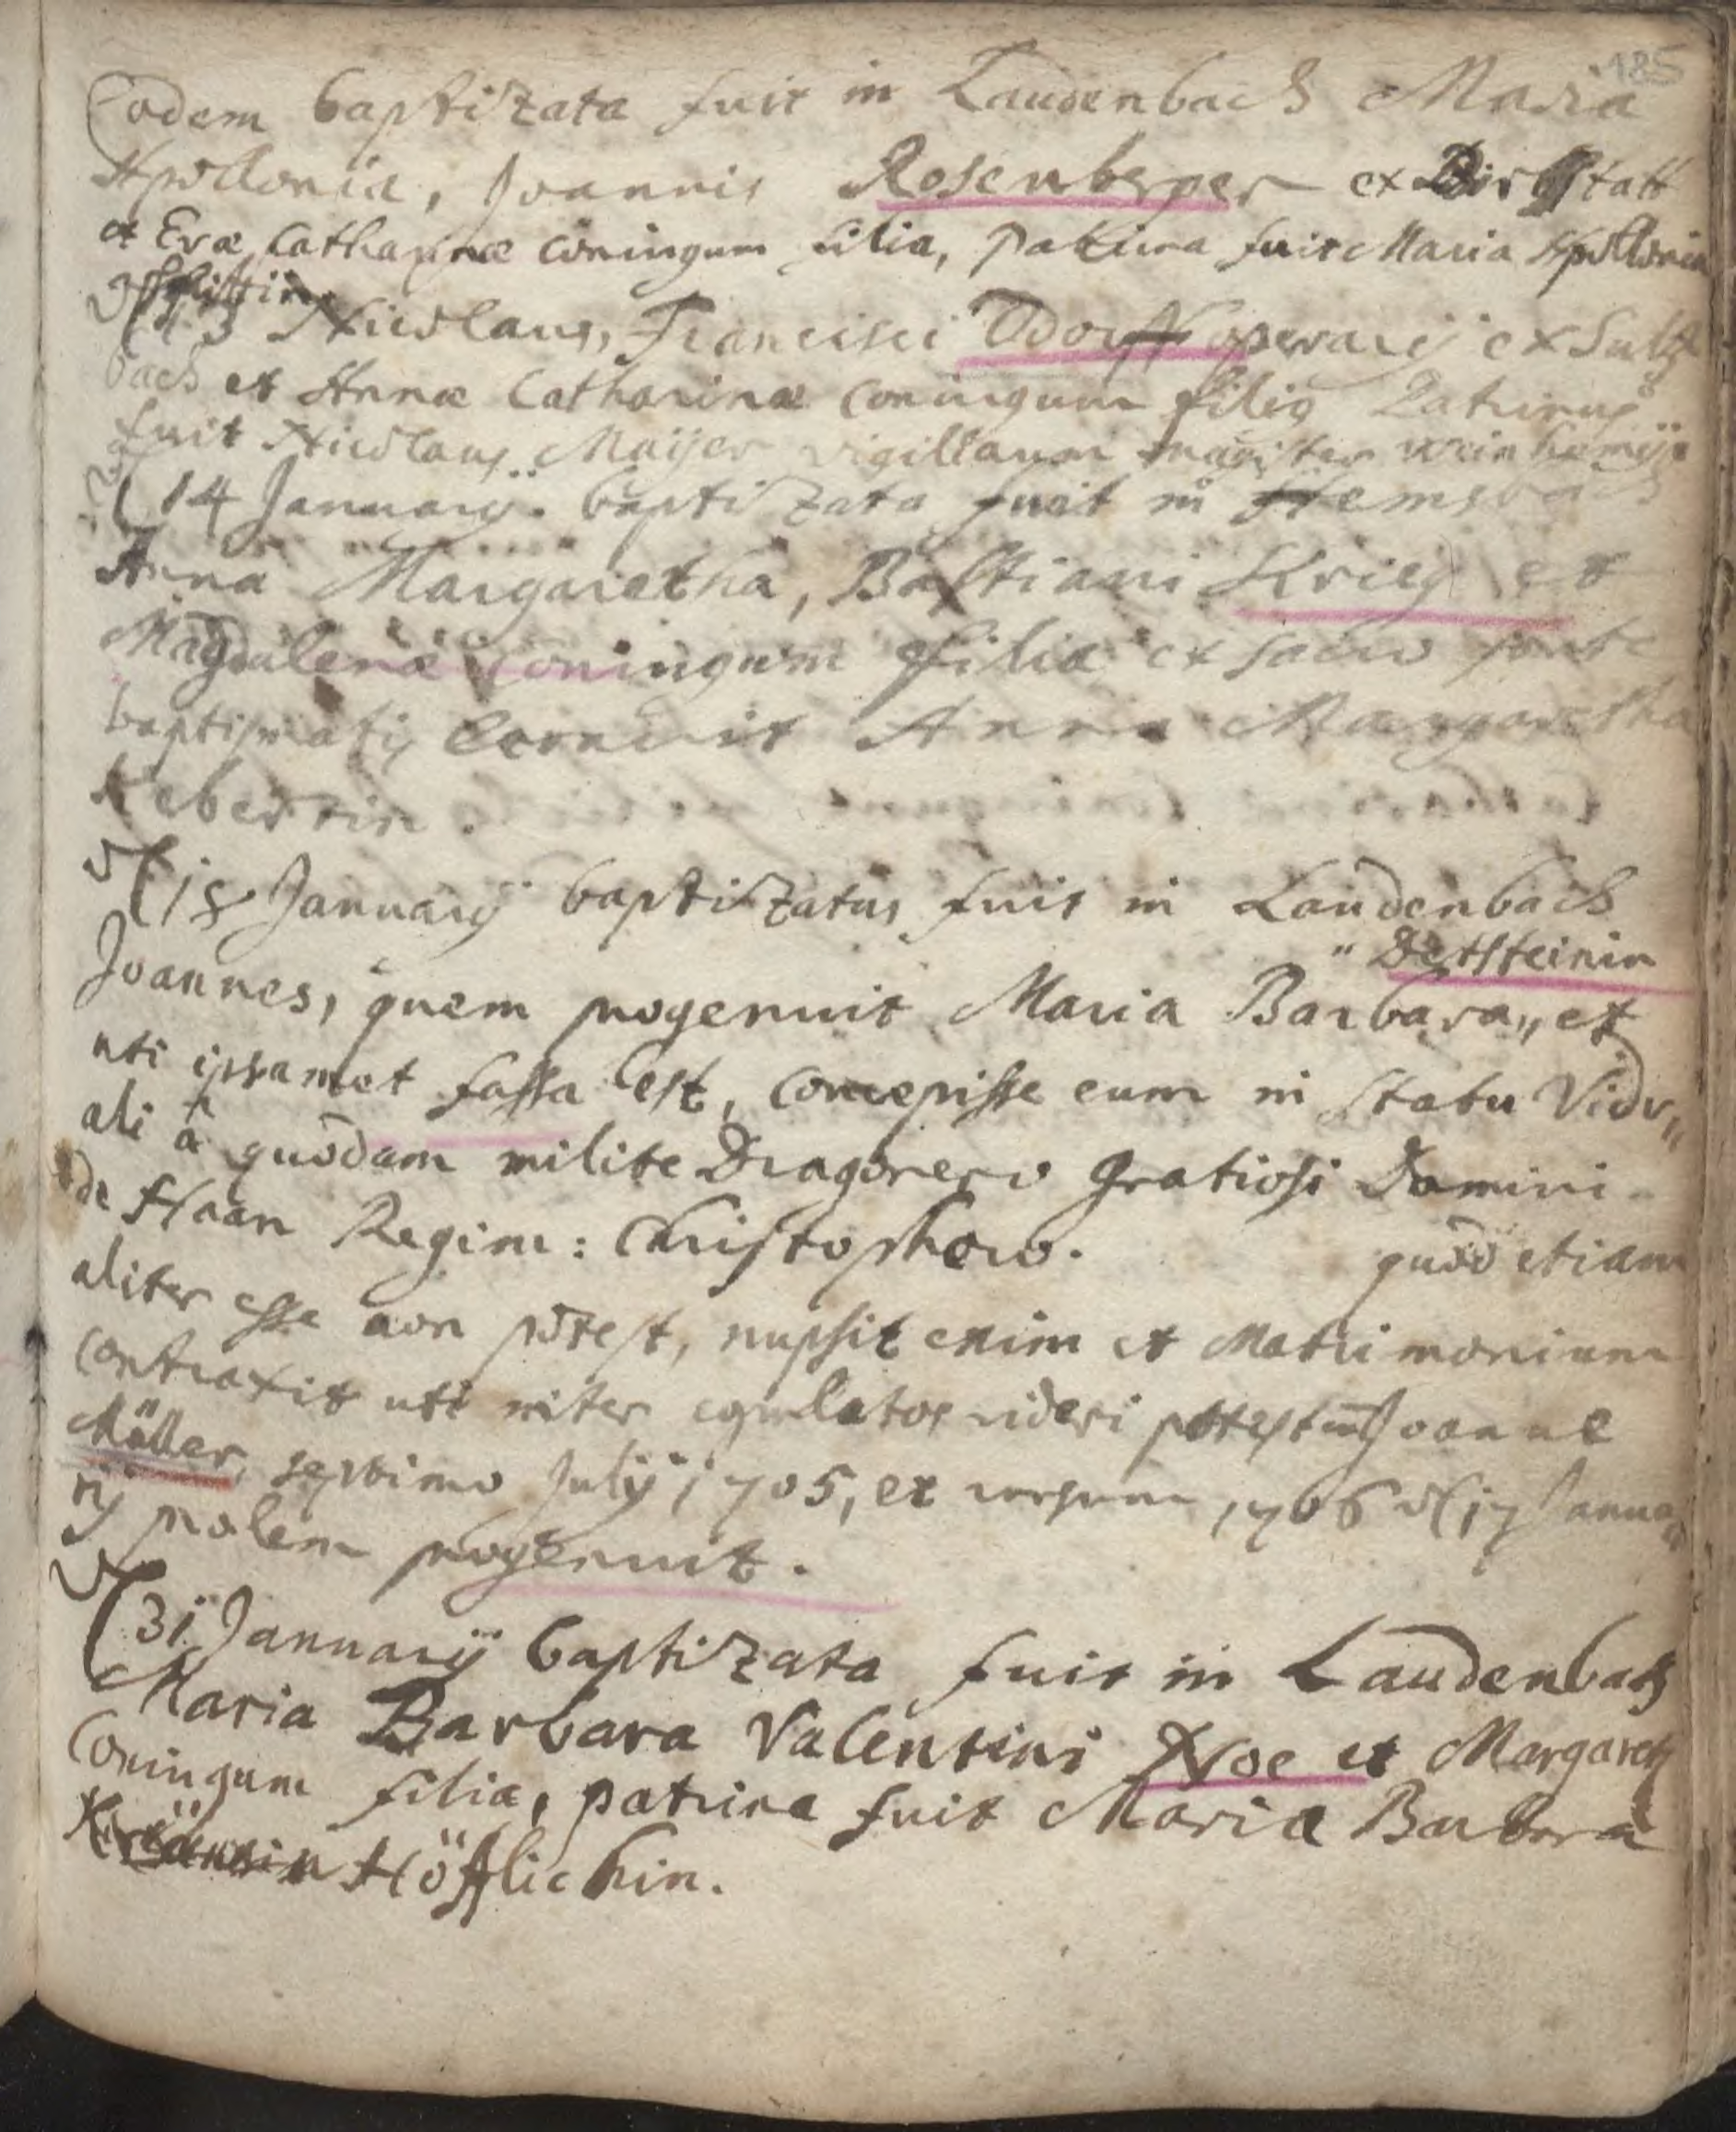 185
Eodem baptizata fuit in Laudenbach Maria
Apollonia, Joannis Rosenberger ex Dirmstatt
et Evæ Catharinæ coniugum filia, patrina fuit Maria Apollonia
d(13 Nicolaus, Francisci Odorff operarij ex Sultz
bach et Annæ Catharinæ coniugum filius Patrinus
fuit Nicolaus Maijer vigillarum magister Weinhemij
d(14 Januarij baptizata fuit in Hemsbach
Anna Margaretha, Bastiani Krieg et
Magdalenæ coniugum filia ex sacro fonte
baptismatis levavit Anna Margaretha
Kebertin.
d(18 Januarij baptizatus fuit in Laudenbach
" Detsteinin
Joannes, quem progenuit Maria Barbara,, et
uti ipsamet fassa est, concepisse eum in statu Vidu,,
ali â quodam milite Dragonero Gratiosi Domini
de Haan Regim: Christophoro. quod etiam
aliter esse non potest, nupsit enim et Matrimonium
contraxit uti inter copulatos videri potest cum Joanne
Müller, septimo Julij 1705, et rursum 1706 d(17 Janua
rij prolem progenuit.
d(31 Januarij baptizata fuit in Laudenbach
Maria Barbara Valentini Noe et Margareth
Coniugum filia, patrina fuit Maria Barbara
Höfflichin.